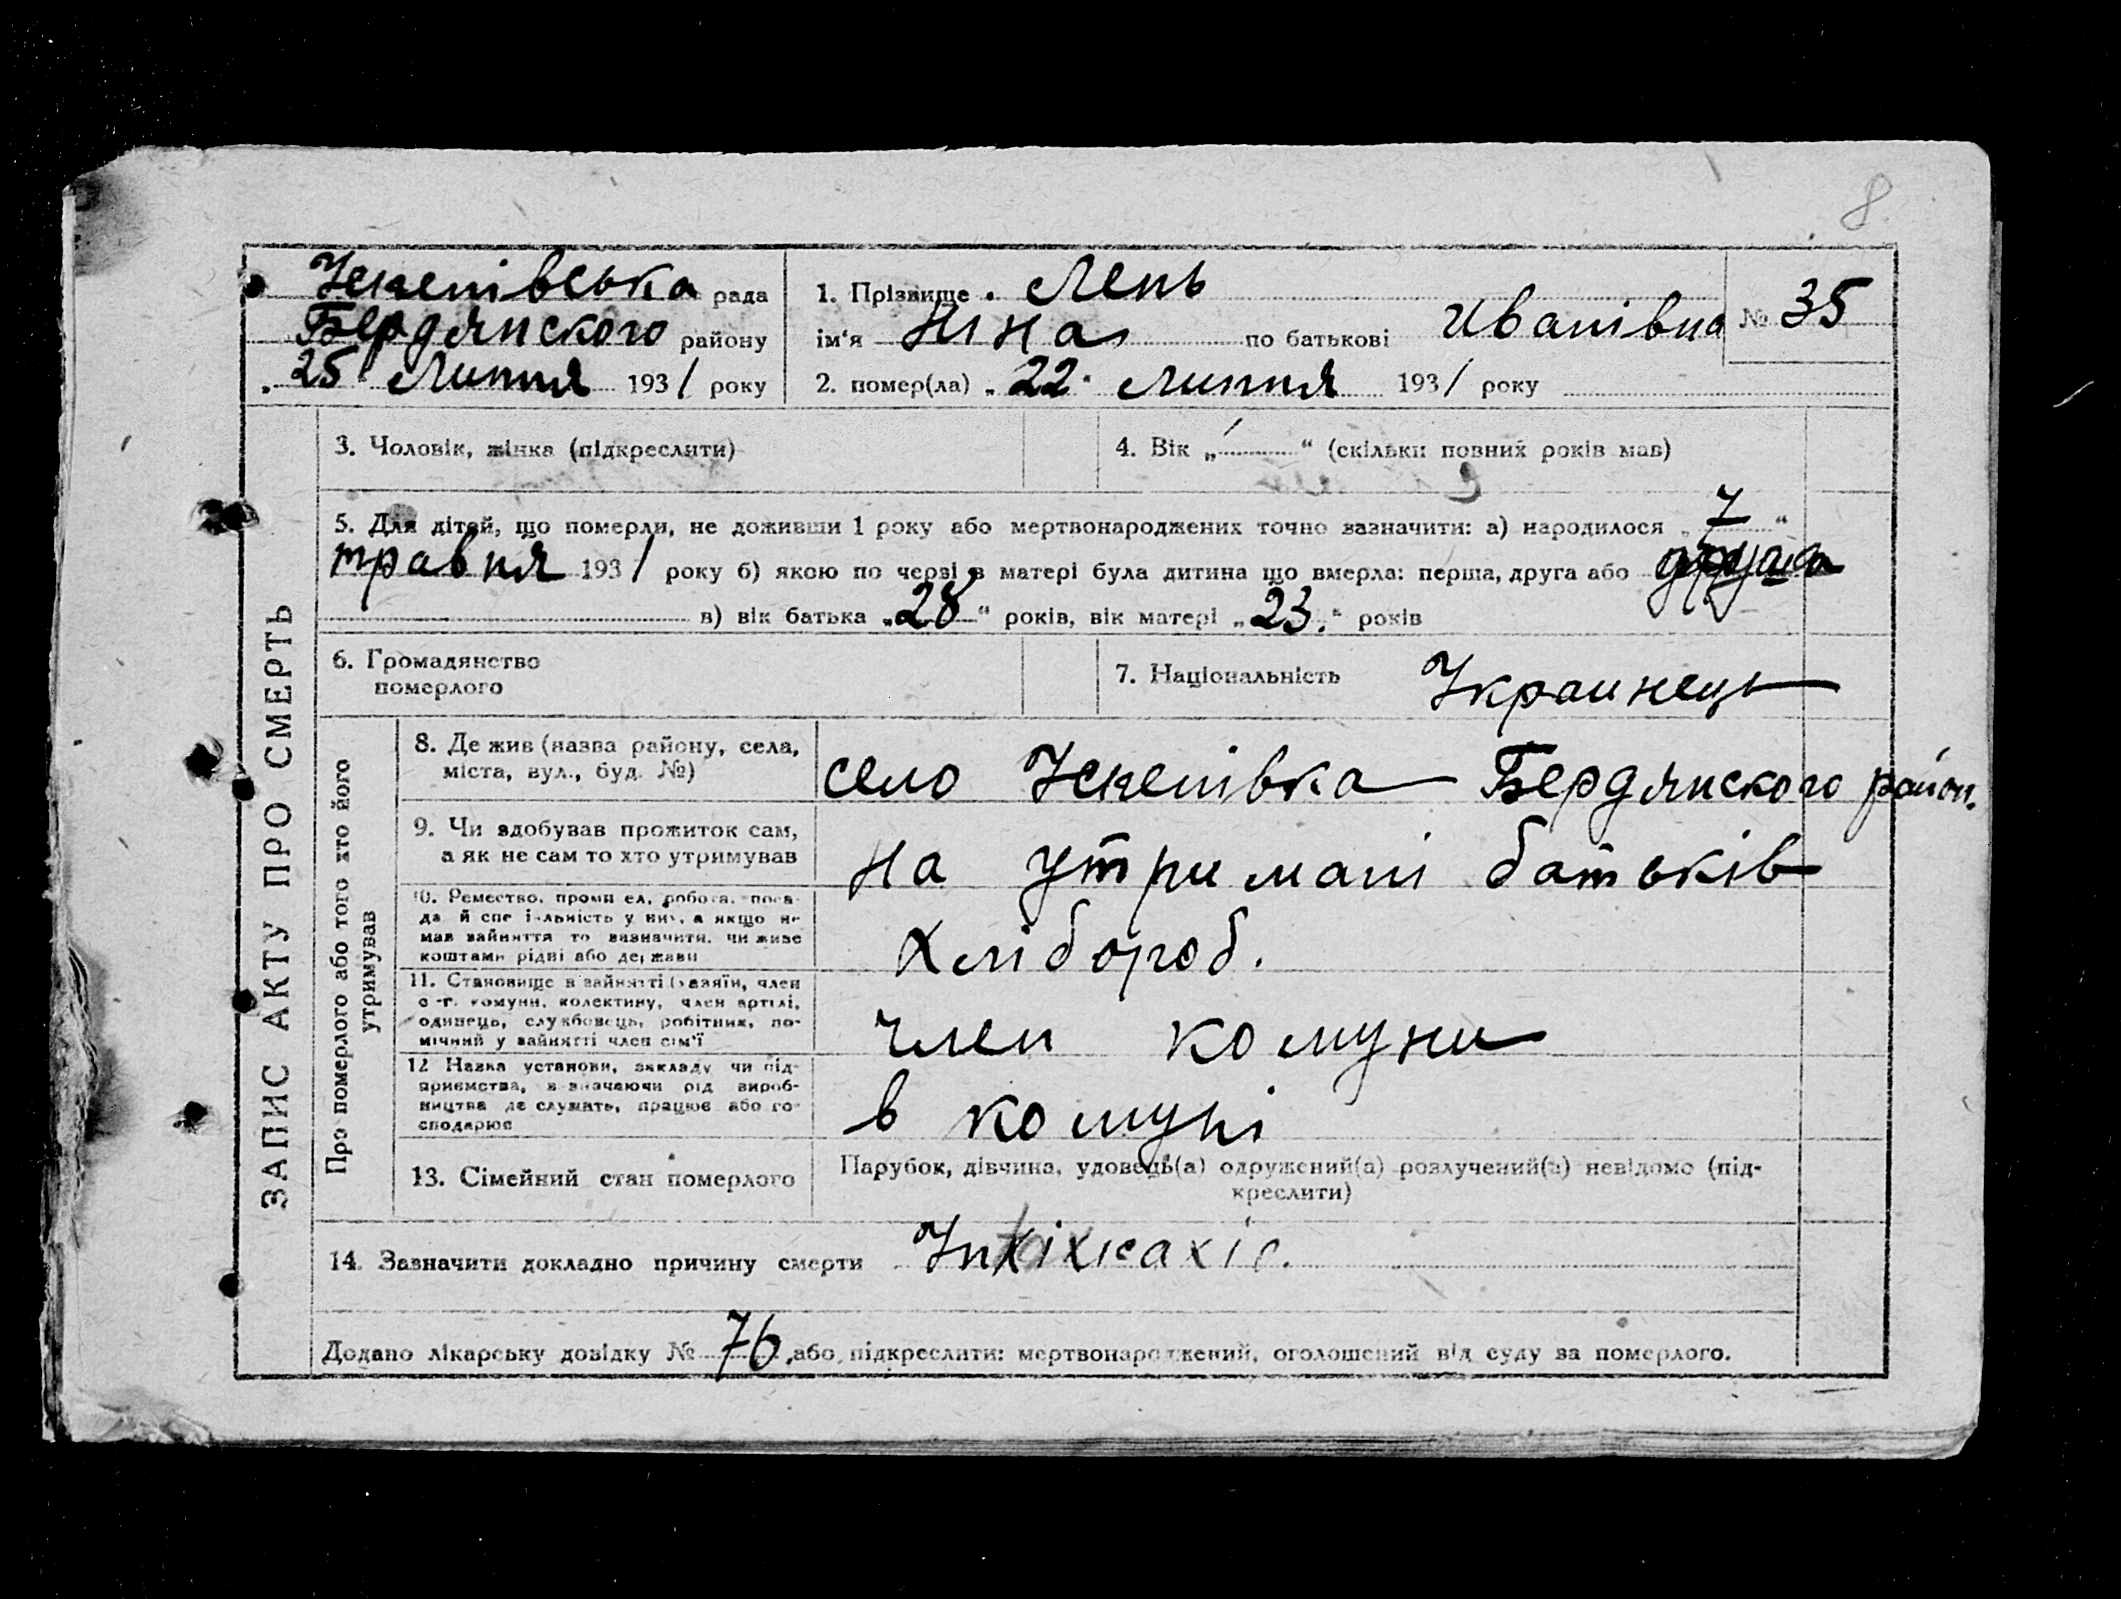 8
Ускепівська рада
Бердянського району
„25“ Липня 1931 року
1. Прізвище Лень
ім'я Ніна по батькові Иванівна
№ 35
2. помер(ла) „22“ Липня 1931 року
ЗАПИС АКТУ ПРО СМЕРТЬ
3. Чоловік, жінка (підкреслити)
4. Вік „ “ (скільки повних років мав)
5. Для дітей, що померли, не доживши 1 року або мертвонароджених точно зазначити: а) народилося „7“
травня 1931 року б) якою по черзі в матері була дитина що вмерла: перша, друга або
в) вік батька „28“ років, вік матері „23“ років
6. Громадянство
померлого
7. Національність Украинець
Про померлого або того хто його
утримував
8. Де жив (назва району, села,
міста, вул., буд. №)
село Ускепівка Бердянского район.
9. Чи здобував прожиток сам,
а як не сам то хто утримував
на утримані батьків
10. Ремество, промисел, робота, поса-
да й спеціяльність у них, а якщо не
мав зайняття то зазначити, чи живе
коштами рідні або держави
Хлібороб.
11. Становище в зайнятті (хазяїн, член
с.-г. комуни, колективу, член артілі,
одинець, службовець, робітник, по-
мічний у зайнятті член сім'ї
член комуни
12 Назва установи, закладу чи під-
приємства, визначаючи рід вироб-
ництва де служить, працює або го-
сподарює
в комуні
13. Сімейний стан померлого
Парубок, дівчина, удовець(а) одружений(а) розлучений(а) невідомо (під-
креслити)
14. Зазначити докладно причину смерти
Додано лікарську довідку № 76 або підкреслити: мертвонароджений, оголошений від суду за померлого.